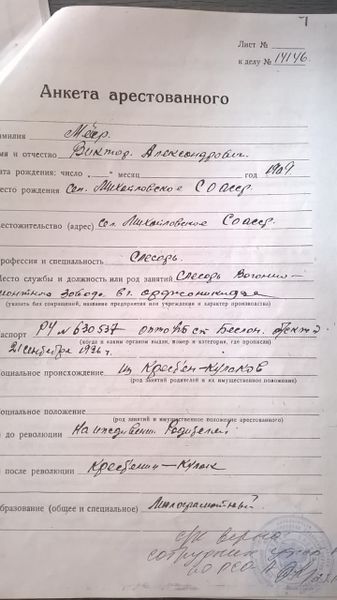 Лист №
к делу № 14146.
Анкета арестованного
амилия Меер.
мя и отчество Виктор Александрович.
ата рождения: число „ “ месяц год 1909
есто рождения Сел. Михайловское СОАССР.
естожительство (адрес) Сел. Михайловское СОАССР.
рофессия и специальность Слесарь.
Место службы и должность или род занятий Слесарь Вагонно-
ремонтного завода в г. Орджоникидзе
(указать без сокращений, название предприятия или учреждения и характер производства)
аспорт РЧ № 630537 Беслан.
(когда и каким органом выдан, номер и категория, где прописан)
21 сентября 1936 г.
оциальное происхождение из Крестьян-Кулаков
(род занятий родителей и их имущественное положение)
оциальное положение
(род занятий и имущественное положение арестованного)
до революции На иждивении Родителей.
после революции Крестьянин-Кулак
бразование (общее и специальное) Малограмотный
верна
сотрудник